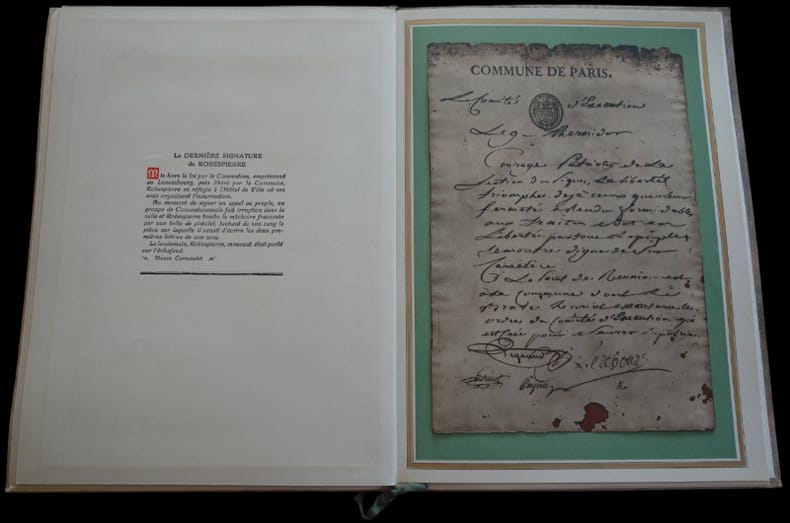 La DERNIÈRE SIGNATURE
de ROBESPIERRE
Mis hors la loi par la Convention, emprisonné
au Luxembourg, puis libéré par la Commune,
Robespierre se réfugie à l'Hôtel de Ville où ses
amis organisent l'insurrection.
Au moment de signer un appel au peuple, un
groupe de Conventionnels fait irruption dans la
salle et Robespierre tombe la mâchoire fracassée
par une balle de pistolet, tachant de son sang la
pièce sur laquelle il vient d'écrire les deux pre-
mières lettres de son nom.
Le lendemain, Robespierre, mourant, était porté
sur l'échafaud.
Musée Carnavalet
COMMUNE DE PARIS.
Le Comité d'Execution
Le 9 thermidor
Courage Patriotes de La
Section des Piques, La liberté
triomphe déjà ceux que leur
fermeté a rendu formidables
aux traitres sont en
Liberté partout le peuple
se montre digne de son
Caractère
Le Point de Reunion est
à la Commune dont le
brave henriot executera les
ordres du Comité d'Execution qui
est Créé pour Sauver la patrie
Legrand Lerebours
Payan R.